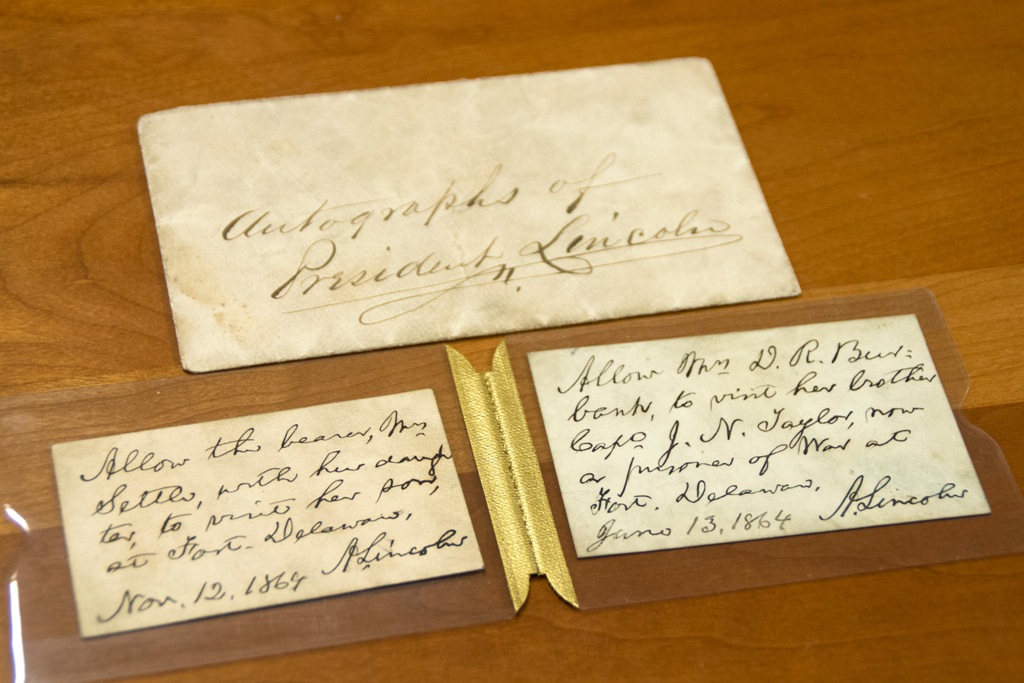 Autographs of
President Lincoln
Allow the bearer, Mrs
Settle, with her daugh
ter, to visit her son,
at Fort. Delaware,
Nov. 12, 1864 A. Lincoln
Allow Mrs D. R. Bur-
bank, to visit her brother
Capt. J. N. Taylor, now
a prisoner of War at
Fort. Delaware,
June 13, 1864 A. Lincoln